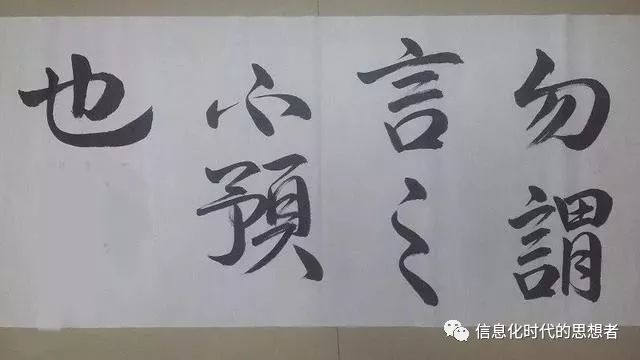 勿謂
言之
不預
也
信息化时代的思想者